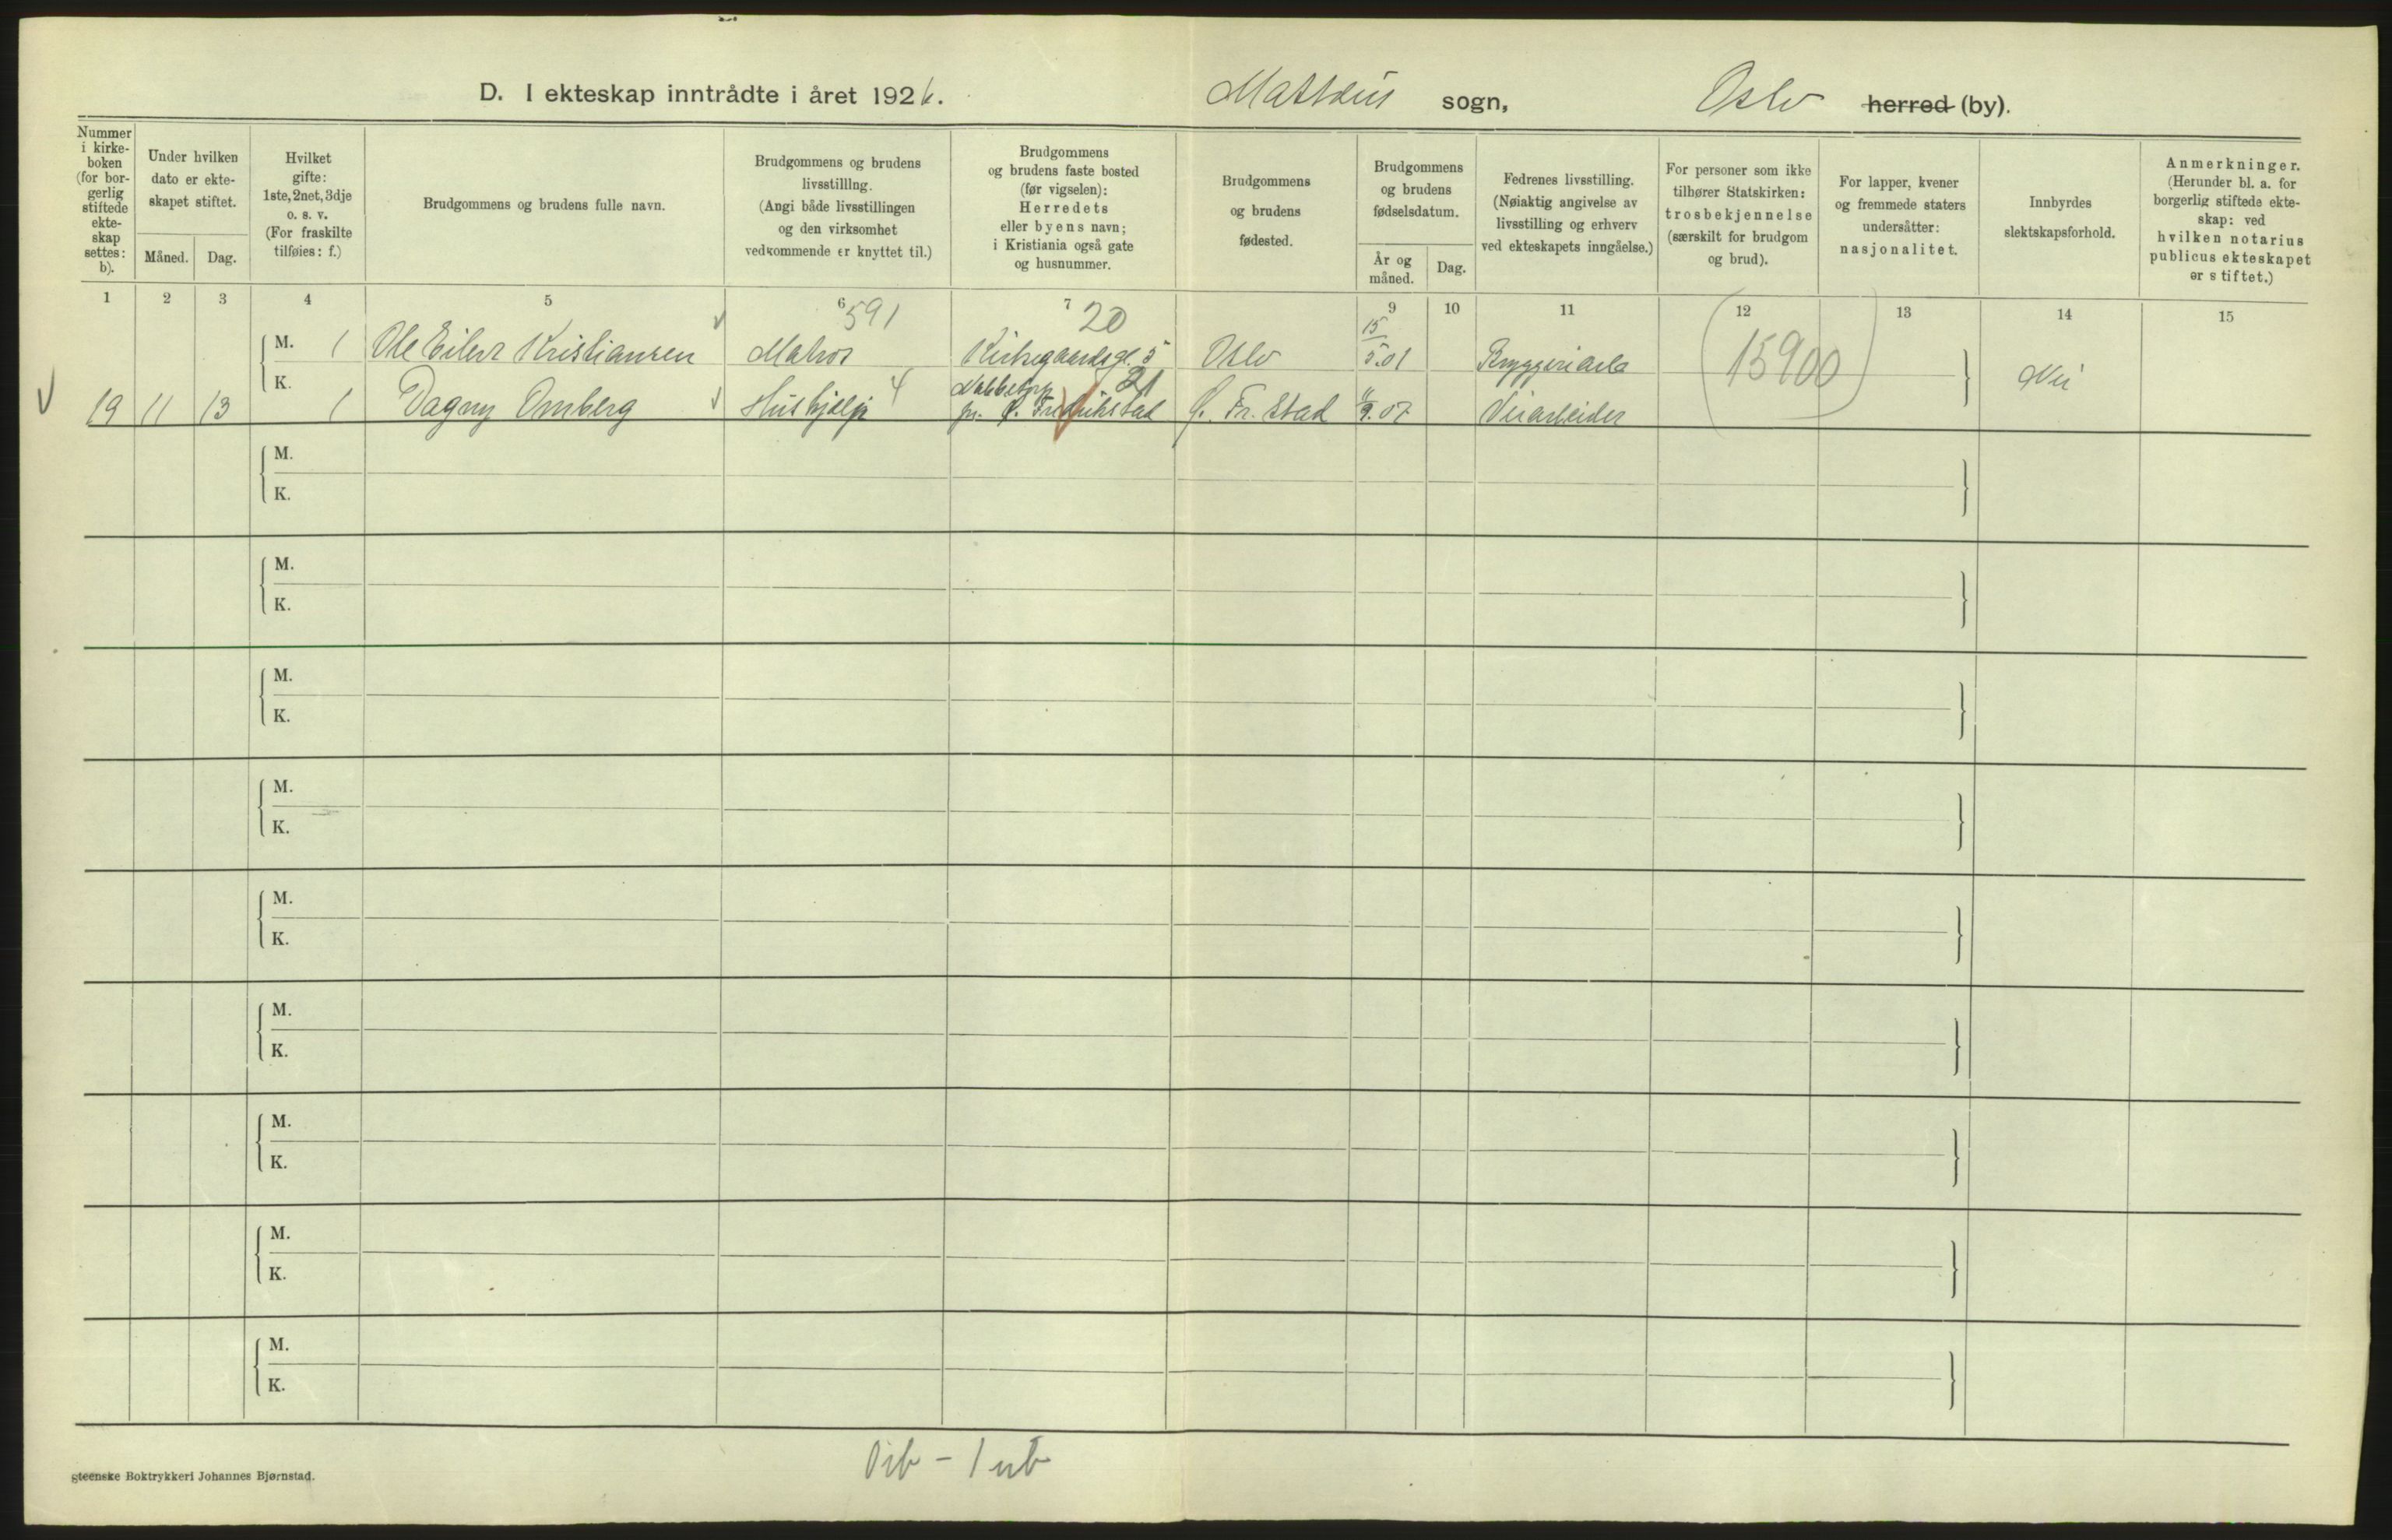 D. I ekteskap inntrådte i året 1926. Mattæus sogn, Oslo herred (by).
Nummer i kirke-boken (for bor-gerlig stiftede ekte-skap settes: b).
Under hvilken dato er ekte-skapet stiftet.
Måned. Dag.
Hvilket gifte: 1ste, 2net, 3dje o. s. v. (For fraskilte tilføies: f.)
Brudgommens og brudens fulle navn.
Brudgommens og brudens livsstilllng. (Angi både livsstillingen og den virksomhet vedkommende er knyttet til.)
Brudgommens og brudens faste bosted (før vigselen): Herredets eller byens navn; i Kristiania også gate og husnummer.
Brudgommens og brudens fødested.
Brudgommens og brudens fødselsdatum.
År og måned. Dag.
Fedrenes livsstilling. (Nøiaktig angivelse av livsstilling og erhverv ved ekteskapets inngåelse.)
For personer som ikke tilhører Statskirken: trosbekjennelse (særskilt for brudgom og brud).
For lapper, kvener og fremmede staters undersåtter: nasjonalitet.
Innbyrdes slektskapsforhold.
Anmerkninger. (Herunder bl. a. for borgerlig stiftede ekte-skap: ved hvilken notarius publicus ekteskapet er stiftet.)
1 2 3 4 5 6 7 9 10 11 12 13 14 15
591 20
M. 1 Ole Eilert Kristiansen Matros Kirkegaardsgt. 5 Oslo 15/5.01 Bryggeriarb (15900) Nei
21
19 11 13 K. 1 Dagny Omberg Hushjelp 4 pr. Fredrikstad Fr. stad 11/9.07 Veiarbeider
M.
K.
M.
K.
M.
K.
M.
K.
M.
K.
M.
K.
M.
K.
M.
K.
M.
K.
steenske Boktrykkeri Johannes Bjørnstad.